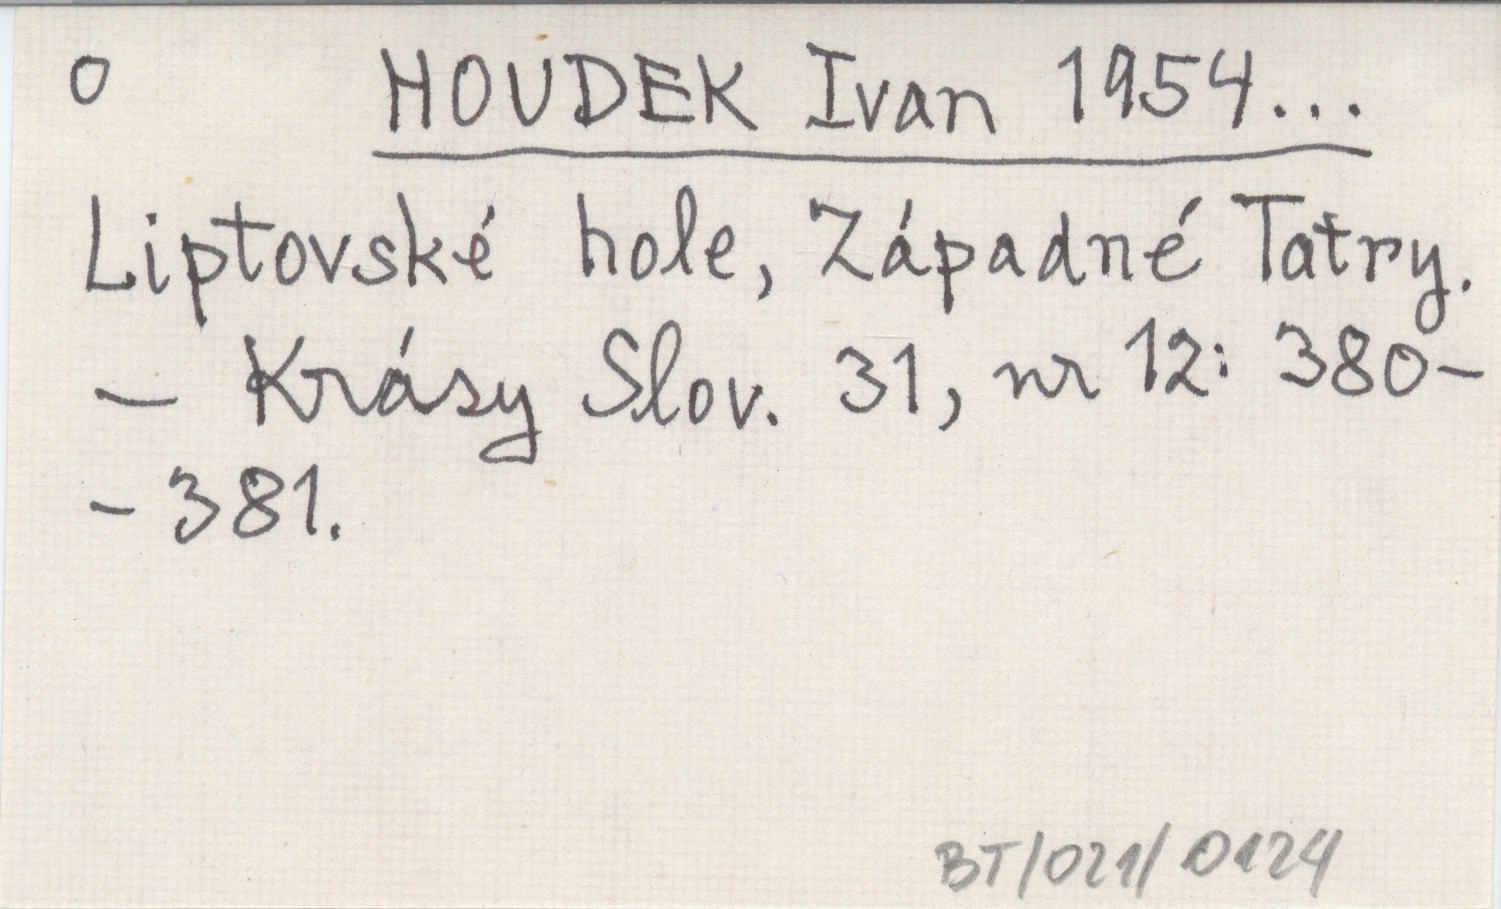 O HOUDEK Ivan 1954...
Liptovské hole, Západné Tatry.
– Krásy Slov. 31, nr 12: 380–
– 381.
BT/021/0124